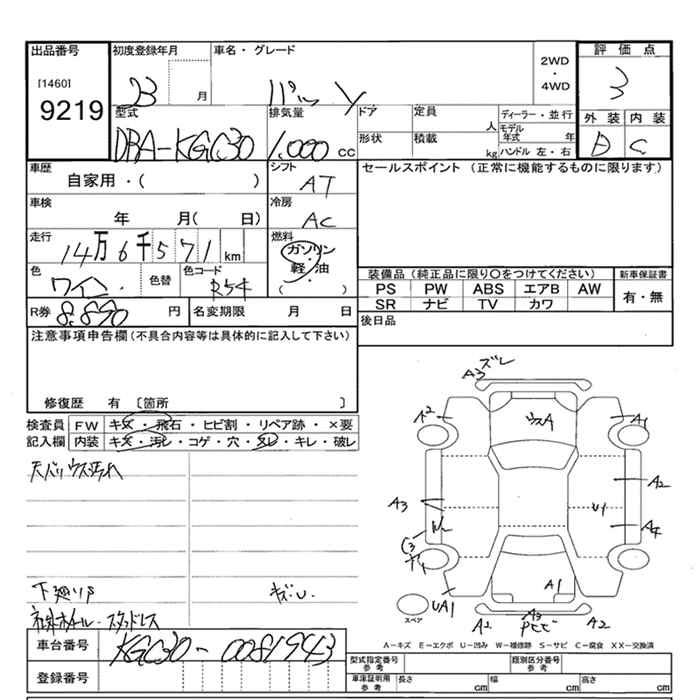 出品番号 初度登録年月 車名・グレード 2WD・4WD 評価点
[1460]
9219
23 月 パッソ 3
型式 排気量 ドア 定員 人 ディーラー・並行 外装 内装
DBA-KGC30 1.000 CC 形状 積載 kg モデル年式 年 D C
ハンドル 左・右
車歴 シフト セールスポイント (正常に機能するものに限ります)
自家用・( ) AT
車検 冷房
年 月( 日) AC
走行 燃料
14万6千571km ガソリン・軽油
色 色替 色コード ( )
ワイン R54 装備品(純正品に限り○をつけてください) 新車保証書
PS PW ABS エアB AW 有・無
SR ナビ TV カワ
R券 8.890 円 名変期限 月 日 後日品
注意事項申告欄(不具合内容等は具体的に記入して下さい)
修復歴 有 〔箇所 〕
検査員 FW キズ・飛石・ヒビ割・リペア跡・×要
記入欄 内装 キズ・汚レ・コゲ・穴・スレ・キレ・破レ
天バリウス汚れ
下廻りサ キズレ
社外ホイール・スタッドレス
A3 ズレ
A2 ウスA A1
A2
A3 U1
W A4
C3
UA1 A1
スペア A2 A3 A2
A-キズ E-エクボ U-凹み W-補修跡 S-サビ C-腐食 XX-交換済
車台番号 KGC30-0081943 型式指定番号 参考 類別区分番号 参考
登録番号 車庫証明用 参考 長さ cm 幅 cm 高さ cm